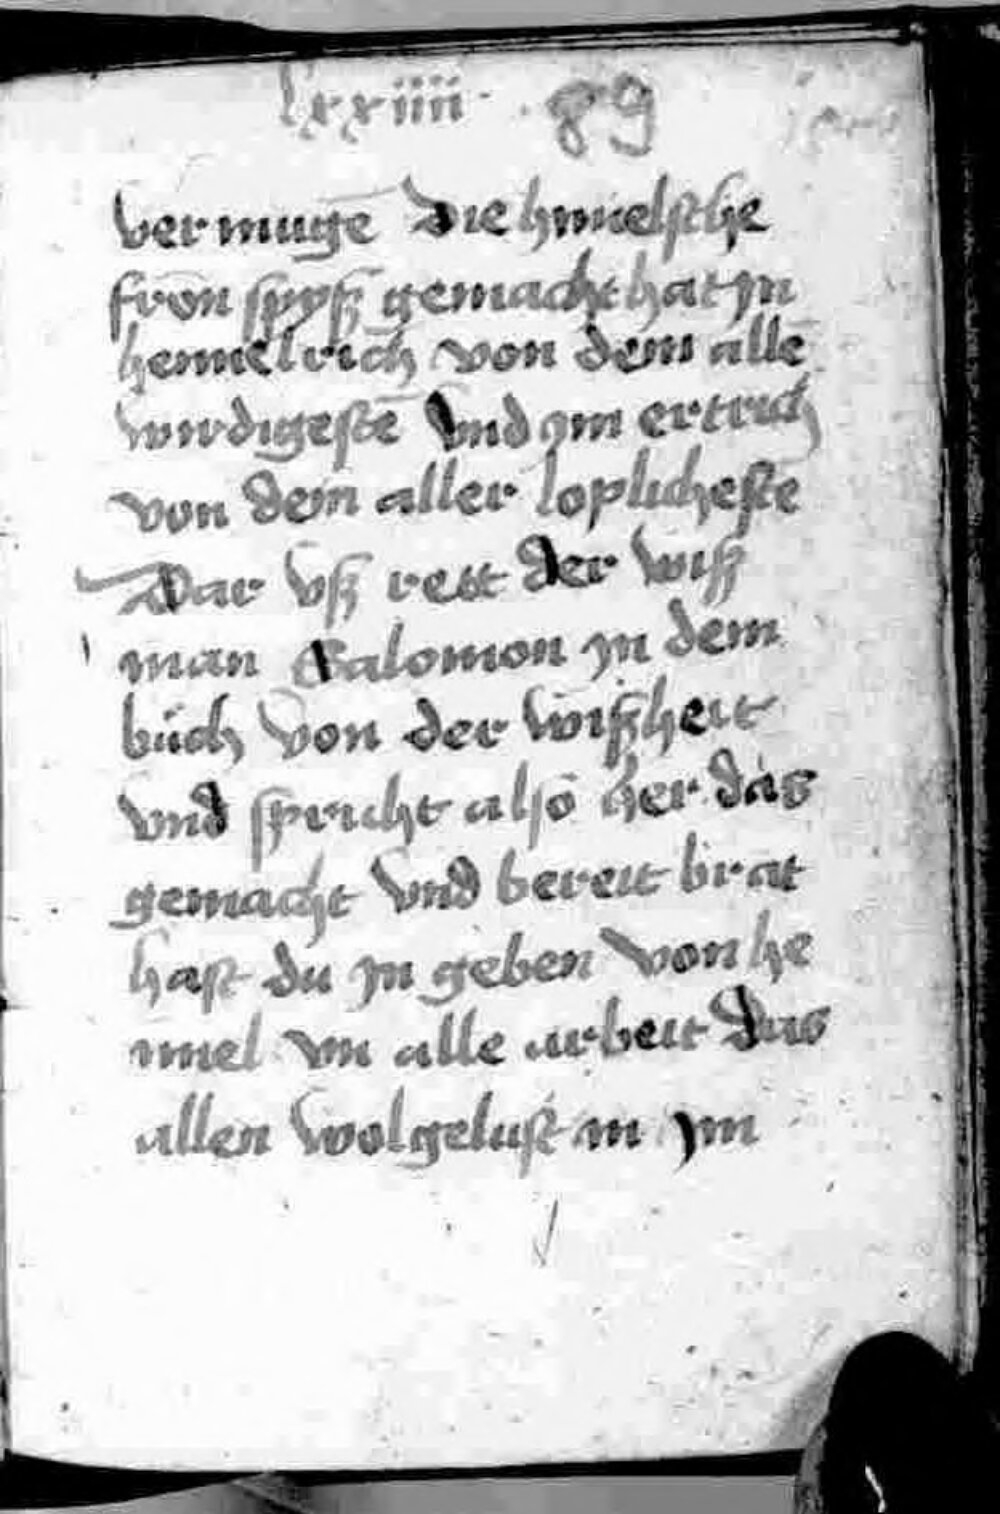 lxxiiii 89
vermugē die himelsche
fron spyß gemacht hat yn
hemelrich von dem allē
wirdigestē vnd ym ertrich
von dem aller loplicheste
Dar vß rett der wiß
man Salomon yn dem
bůch von der wißheit
vnd spricht also her das
gemacht vnd bereit brat
hast du yn geben von he
mel vm alle arbeit das
allen wolgelust in ym